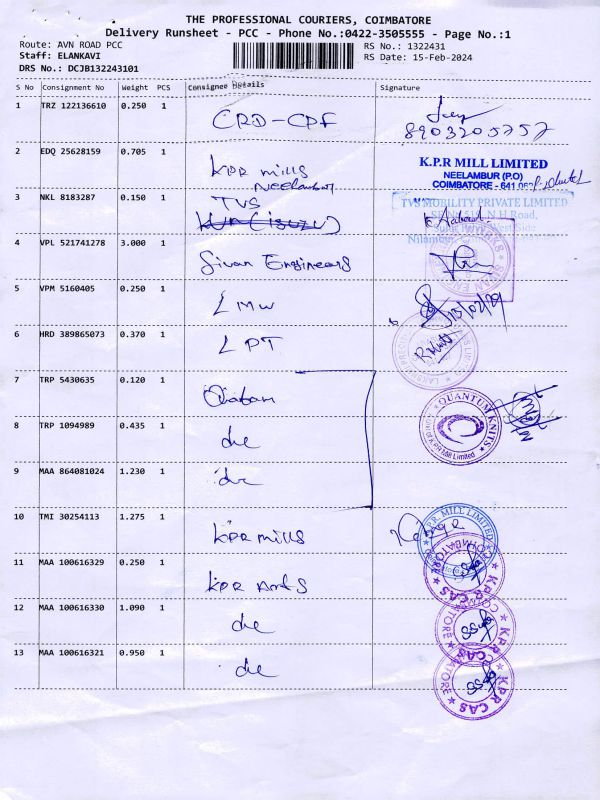 THE PROFESSIONAL COURIERS, COIMBATORE
Delivery Runsheet - PCC - Phone No.:0422-3505555 - Page No.:1
Route: AVN ROAD PCC RS No.: 1322431
Staff: ELANKAVI RS Date: 15-Feb-2024
DRS No.: DCJB132243101
S No Consignment No Weight PCS Consignee Details Signature
1 TRZ 122136610 0.250 1 CRD-CPF
8903205757
2 EDQ 25628159 0.705 1 KPR mills
Neelambur
K.P.R MILL LIMITED
NEELAMBUR (P.O)
COIMBATORE - 641 062
3 NKL 8183287 0.150 1 TVS
TVS MOBILITY PRIVATE LIMITED
4 VPL 521741278 3.000 1 Sivan Engineers
5 VPM 5160405 0.250 1 LMW
6 HRD 389865073 0.370 1 LPT
7 TRP 5430635 0.120 1
QUANTUM KNITS
8 TRP 1094989 0.435 1 do
9 MAA 864081024 1.230 1 do
10 TMI 30254113 1.275 1 KPR mills
K.P.R. MILL LIMITED
11 MAA 100616329 0.250 1 KPR Arts
KPR CAS COIMBATORE
12 MAA 100616330 1.090 1 do
KPR CAS COIMBATORE
13 MAA 100616321 0.950 1 do
KPR CAS COIMBATORE